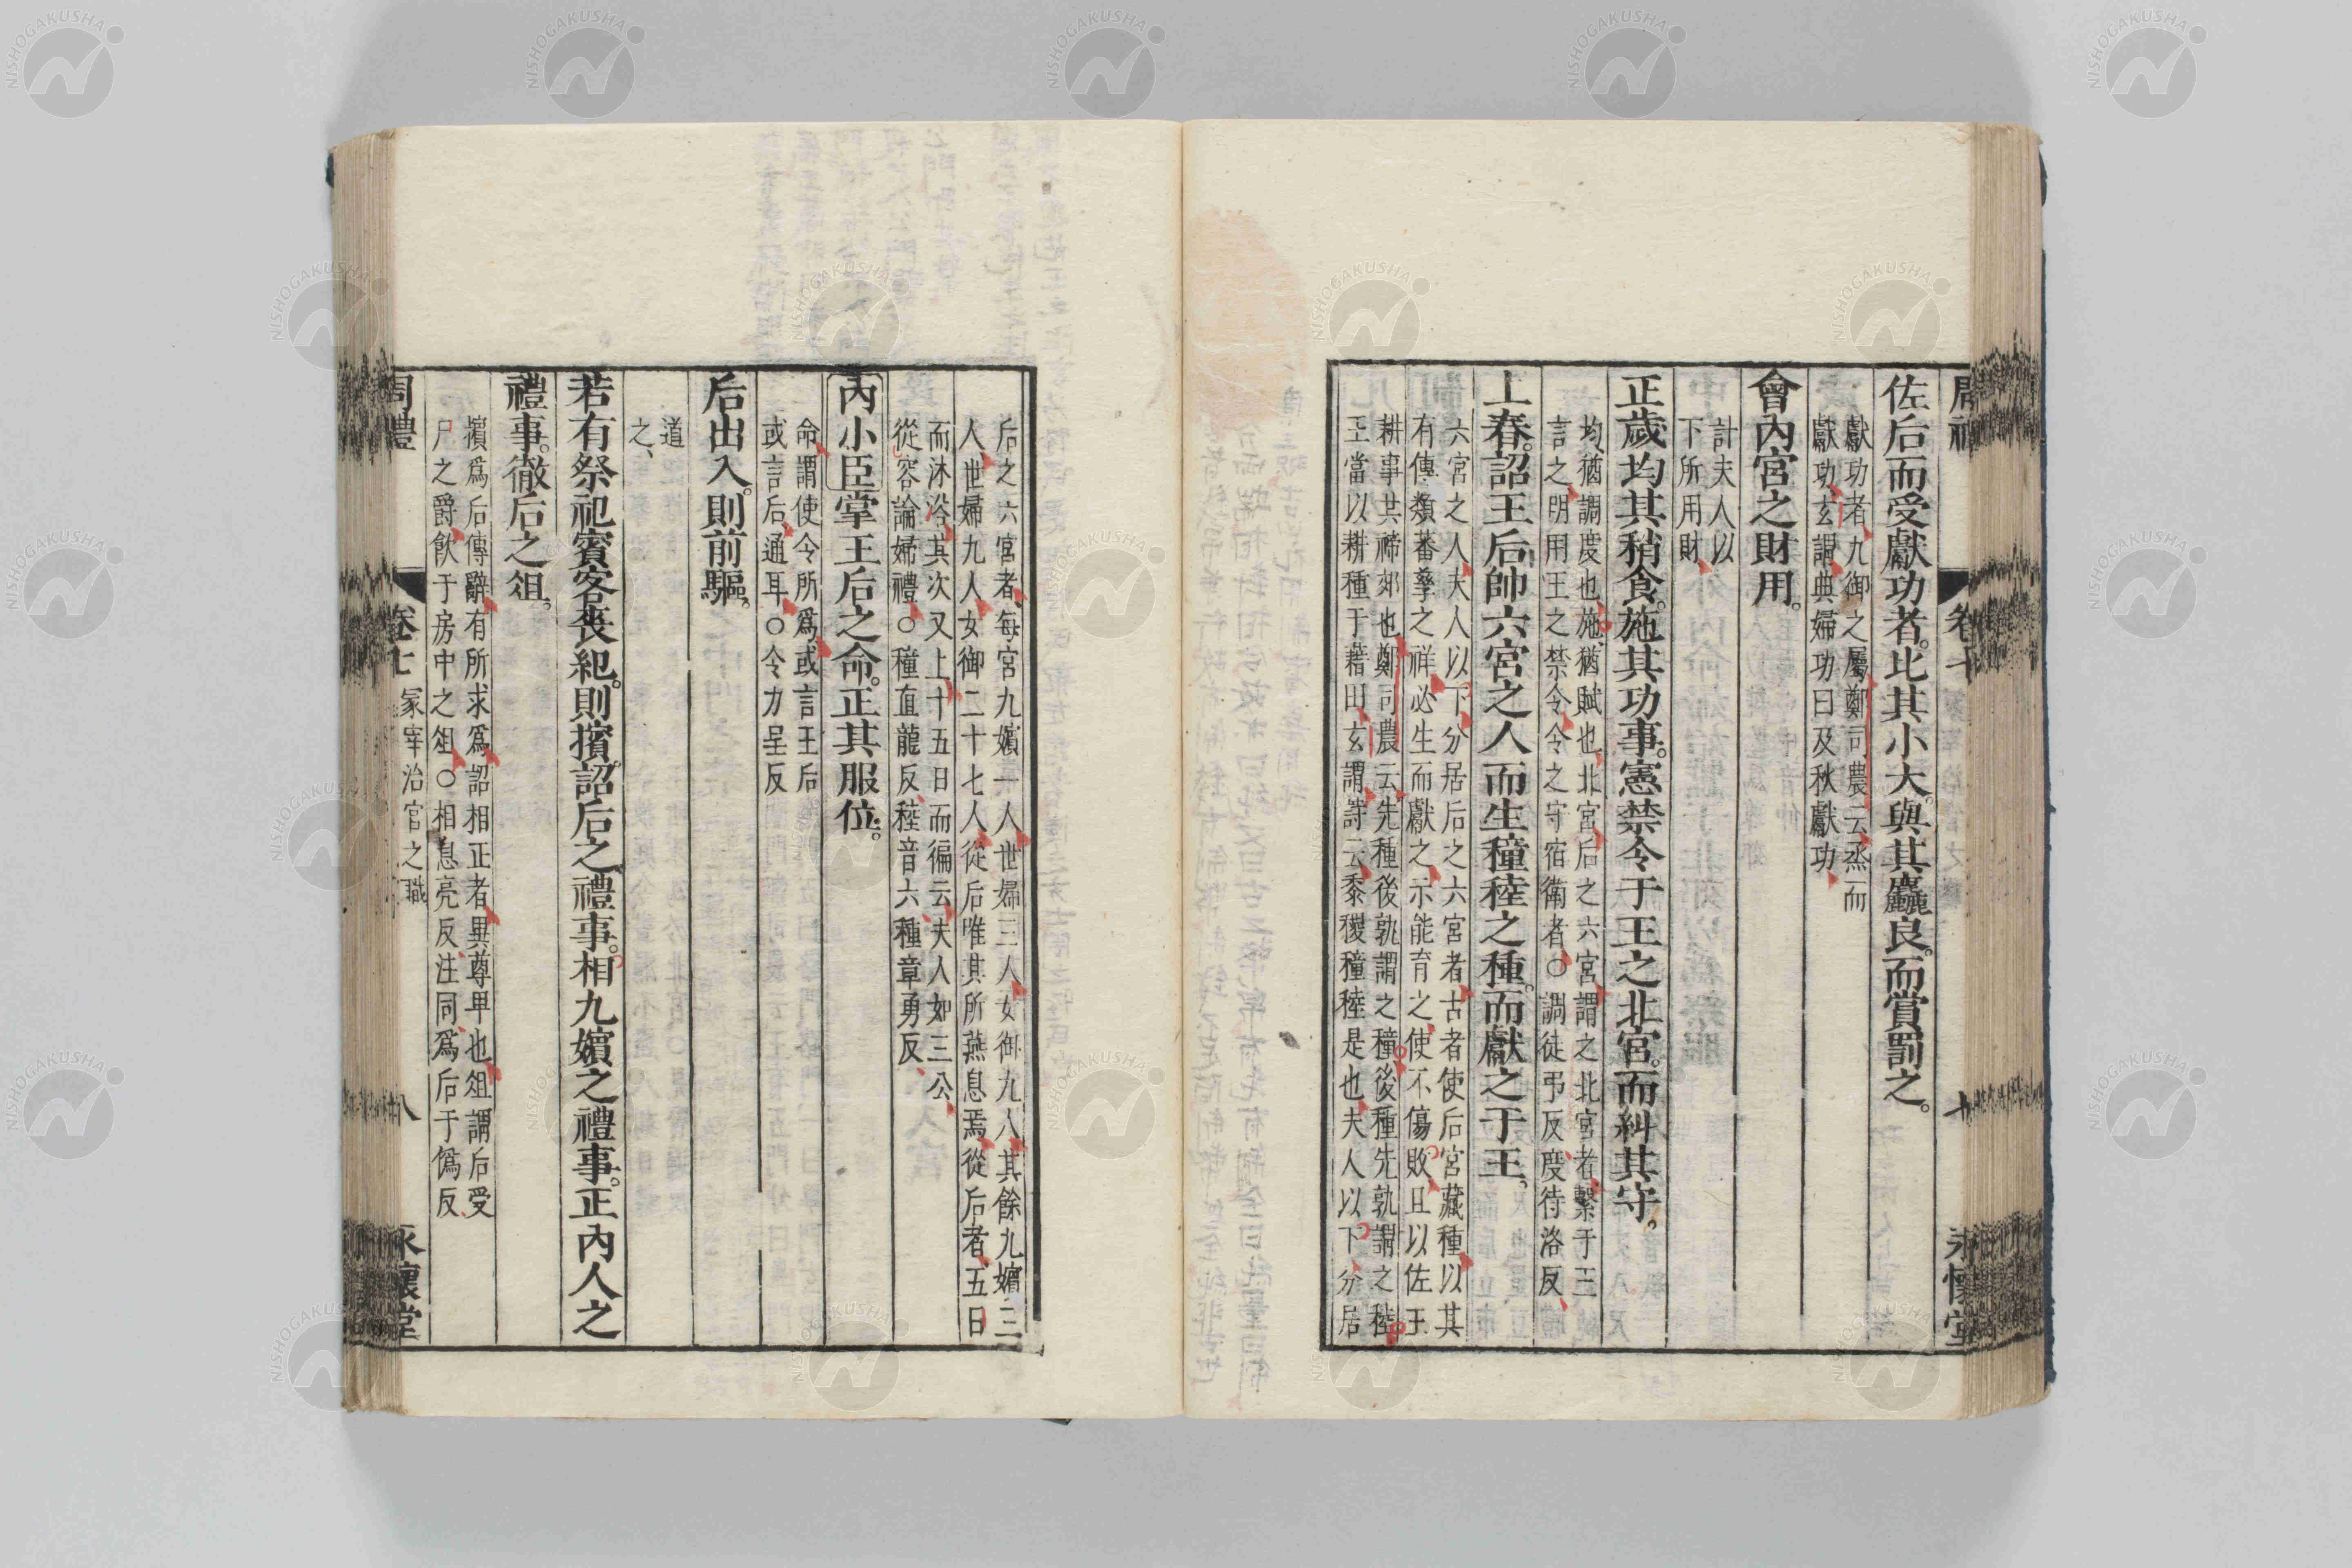 周禮 卷七 七 永懷堂
佐后而受獻功者。比其小大。與其麤良。而賞罰之。
獻功者九御之屬鄭司農云烝而
獻功玄謂典婦功曰及秋獻功
會內宮之財用。
計夫人以
下所用財
正歲均其稍食。施其功事。憲禁令于王之北宮。而糾其守。
均猶調度也施猶賦也北宮后之六宮謂之北宮者繫于王
言之明用王之禁令令之守宿衛者○調徒弔反度待洛反
上春。詔王后帥六宮之人而生穜稑之種。而獻之于王。
六宮之人夫人以下分居后之六宮者古者使后宮藏種以其
有傳類蕃孳之祥必生而獻之示能育之使不傷敗且以佐王
耕事共禘郊也鄭司農云先種後孰謂之穜後種先孰謂之稑
王當以耕種于藉田玄謂詩云黍稷穜稑是也夫人以下分居
后之六宮者每宮九嬪一人世婦三人女御九人其餘九嬪三
人世婦九人女御二十七人從后唯其所燕息焉從后者五日
而沐浴其次又上十五日而徧云夫人如三公
從容論婦禮○種直龍反稑音六種章勇反
內小臣掌王后之命。正其服位。
命謂使令所爲或言王后
或言后通耳○令力呈反
后出入。則前驅。
道
之
若有祭祀賓客喪紀。則擯。詔后之禮事。相九嬪之禮事。正內人之
禮事。徹后之俎。
擯爲后傳辭有所求爲詔相正者異尊卑也俎謂后受
尸之爵飲于房中之俎○相息亮反注同爲后于僞反
周禮 卷七 冢宰治官之職 八 永懷堂
NISHOGAKUSHA